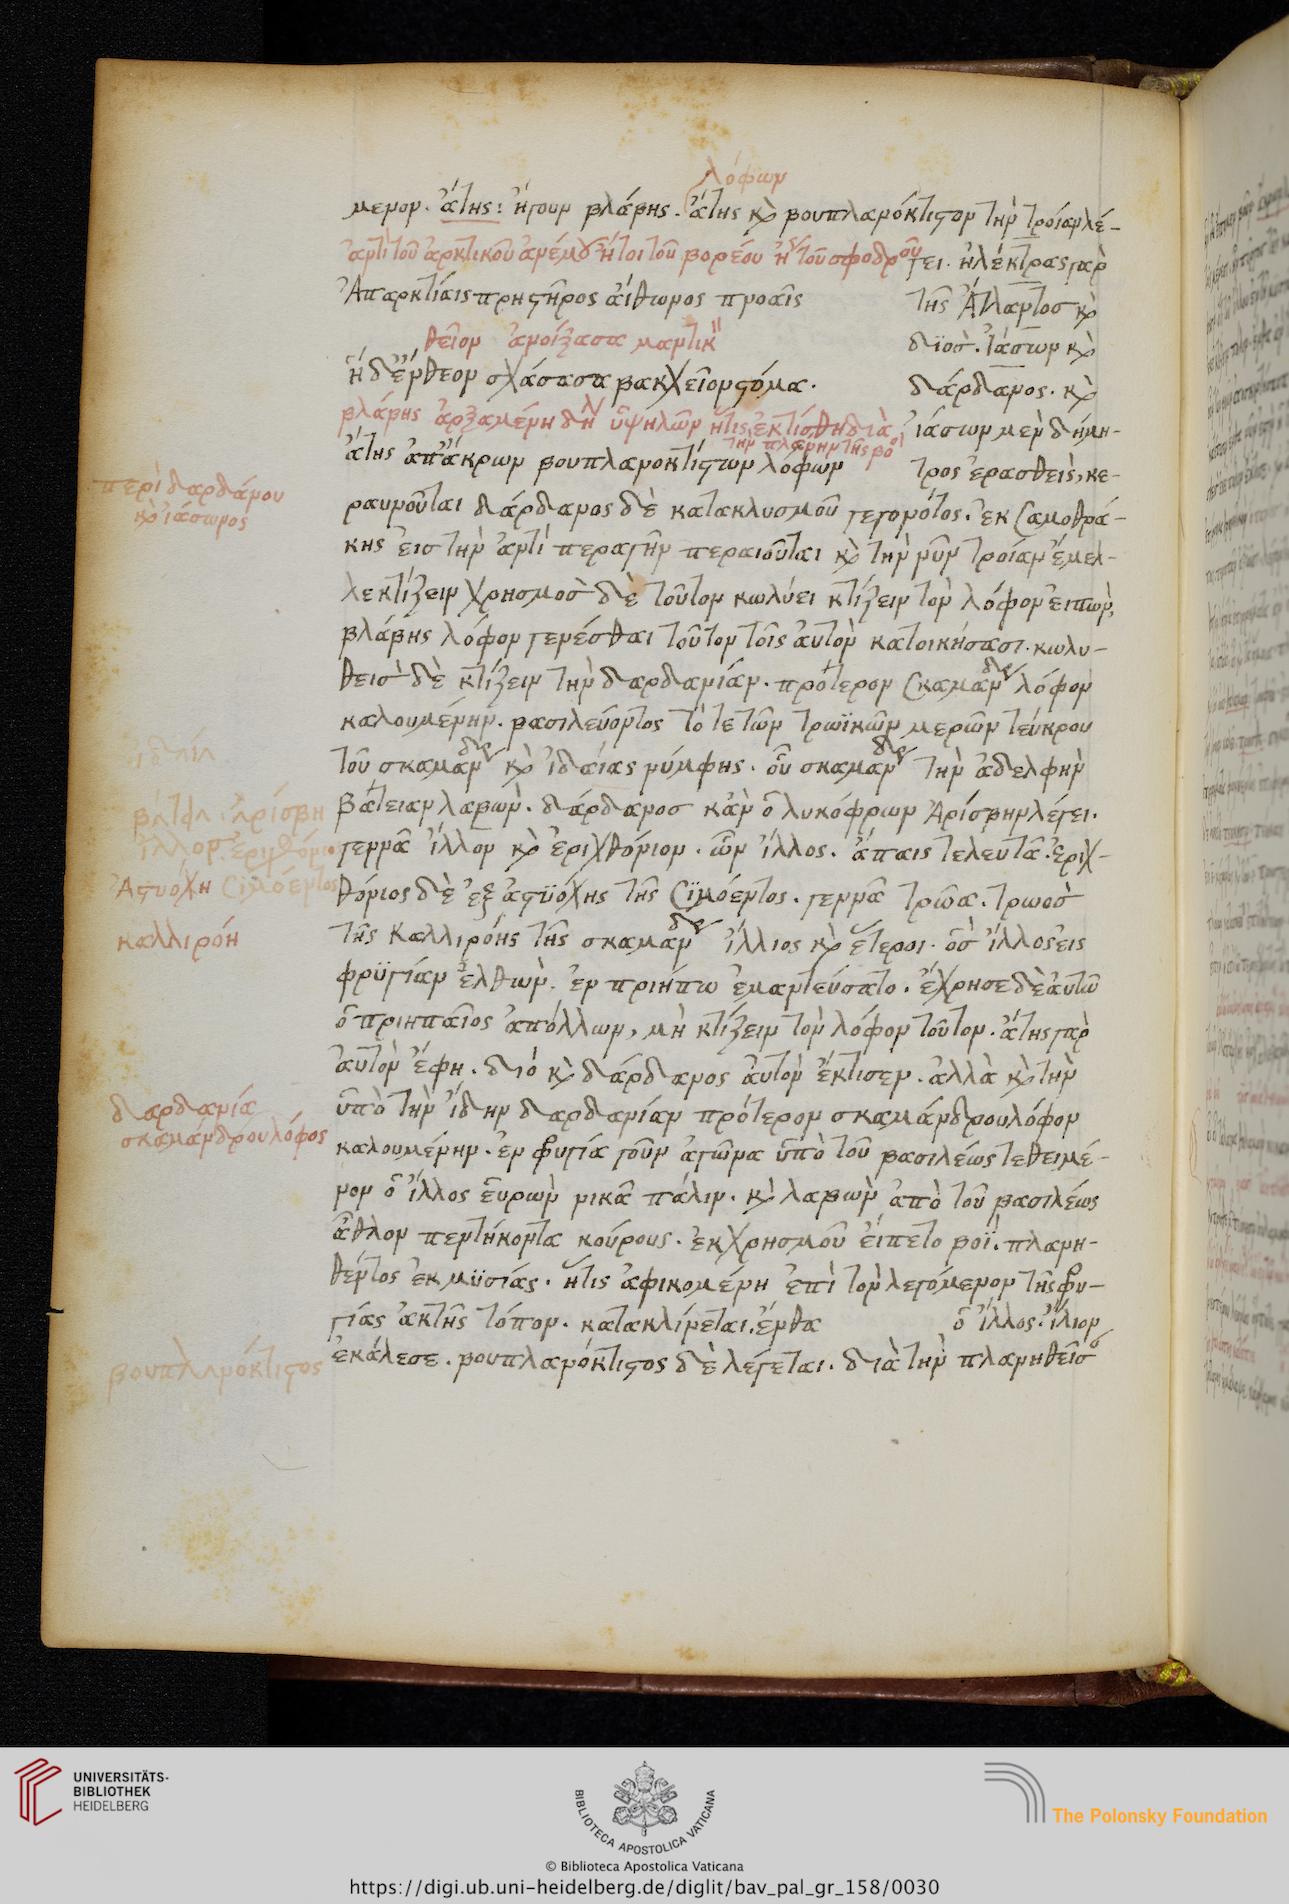 λόφων
μενον. ἄτης: ἤγουν βλάβης. ἄτης κ βουπλανόκτιστον τὴν τροίαν λέ-
ἀντὶ τοῦ ἀρκτικοῦ ἀνέμου ἤτοι τοῦ βορέου ἢ τοῦ σφοδροῦ
γει. ἠλέκτρας γὰρ
Ἀπαρκτίαις πρηστῆρος αἴθωνος πνοαῖς
τῆς Ἄτλαντος κ
θεῖον ἀνοίξασα μαντικ
διὸς. Ἰάσων κ
ἣ δ' ἔνθεον σχάσασα βακχεῖον στόμα.
δάρδανος. κ
βλάβης ἀρξαμένη δηλ ὑψηλῶν ἥτις ἐκτίσθη διὰ
ἰάσων μὲν δήμη-
τὴν πλάνην τῆς βοός
ἄτης ἀπ' ἄκρων βουπλανοκτίστων λόφων
τρος ἐρασθεὶς, κε-
περὶ δαρδάνου
κ ἰάσωνος
ραυνοῦται δάρδανος δὲ κατακλυσμοῦ γεγονότος. ἐκ Σαμοθρά-
κης εἰς τὴν ἀντιπέρα γῆν περαιοῦται κ τὴν νῦν τροίαν ἔμελ-
λε κτίζειν χρησμὸς δὲ τοῦτον κωλύει κτίζειν τὸν λόφον εἰπὼν,
βλάβης λόφον γενέσθαι τοῦτον τοῖς αὐτὸν κατοικήσασι. κωλυ-
θεὶς δὲ κτίζειν τὴν δαρδανίαν. πρότερον Σκαμάνδρ λόφον
καλουμένην. βασιλεύοντος τότε τῶν τρωϊκῶν μερῶν τεύκρου
τοῦ σκαμάνδρ κ ἰδαίας νύμφης. οὗ σκαμάνδρ τὴν ἀδελφὴν
Βάτειαν λαβὼν. δάρδανος κἂν ὁ λυκόφρων Ἀρίσβην λέγει.
γεννᾶ ἴλλον κ ἐριχθόνιον. ὧν ἴλλος. ἄπαις τελευτᾶ. ἐριχ-
Ἀστυόχη Σϊμόεντος
θόνιος δὲ ἐξ ἀστϋόχης τῆς Σϊμόεντος. γεννᾶ τρῶα. τρωὸς
καλλιρόη
τῆς Καλλιρόης τῆς σκαμάνδρ ἴλλιος κ ἕτεροι. ὃς ἴλλος εἰς
φρϋγίαν ἐλθὼν. ἐν πριήπω ἐμαντεύσατο. ἔχρησε δὲ αὐτῶ
ὁ πριηπαῖος ἀπόλλων, μὴ κτίζειν τὸν λόφον τοῦτον. ἄτης γὰρ
αὐτὸν ἔφη. διό κ δάρδανος αὐτὸν ἔκτισεν. ἀλλὰ κ τὴν
δαρδανία
σκαμάνδρου λόφος
ὑπὸ τὴν ἴδην δαρδανίαν πρότερον σκαμάνδρου λόφον
καλουμένην. ἐν φρυγία γοῦν ἀγῶνα ὑπὸ τοῦ βασιλέως τεθειμέ-
νον ὁ ἴλλος εὑρὼν νικᾶ πάλιν. κ λαβὼν ἀπὸ τοῦ βασιλέως
ἆθλον πεντήκοντα κούρους. ἐκ χρησμοῦ εἵπετο βοῒ. πλανη-
θέντος ἐκ μϋσίας. ἥτις ἀφικομένη ἐπὶ τὸν λεγόμενον τῆς φρυ-
γίας ἀκτῆς τόπον. κατακλίνεται. ἔνθα ὁ ἴλλος. ἴλιον
βουπλανόκτιστος
ἐκάλεσε. βουπλανόκτιστος δὲ λέγεται. διὰ τὴν πλανηθεῖσ
UNIVERSITÄTS-
BIBLIOTHEK
HEIDELBERG
BIBLIOTECA APOSTOLICA VATICANA
The Polonsky Foundation
© Biblioteca Apostolica Vaticana
https://digi.ub.uni-heidelberg.de/diglit/bav_pal_gr_158/0030